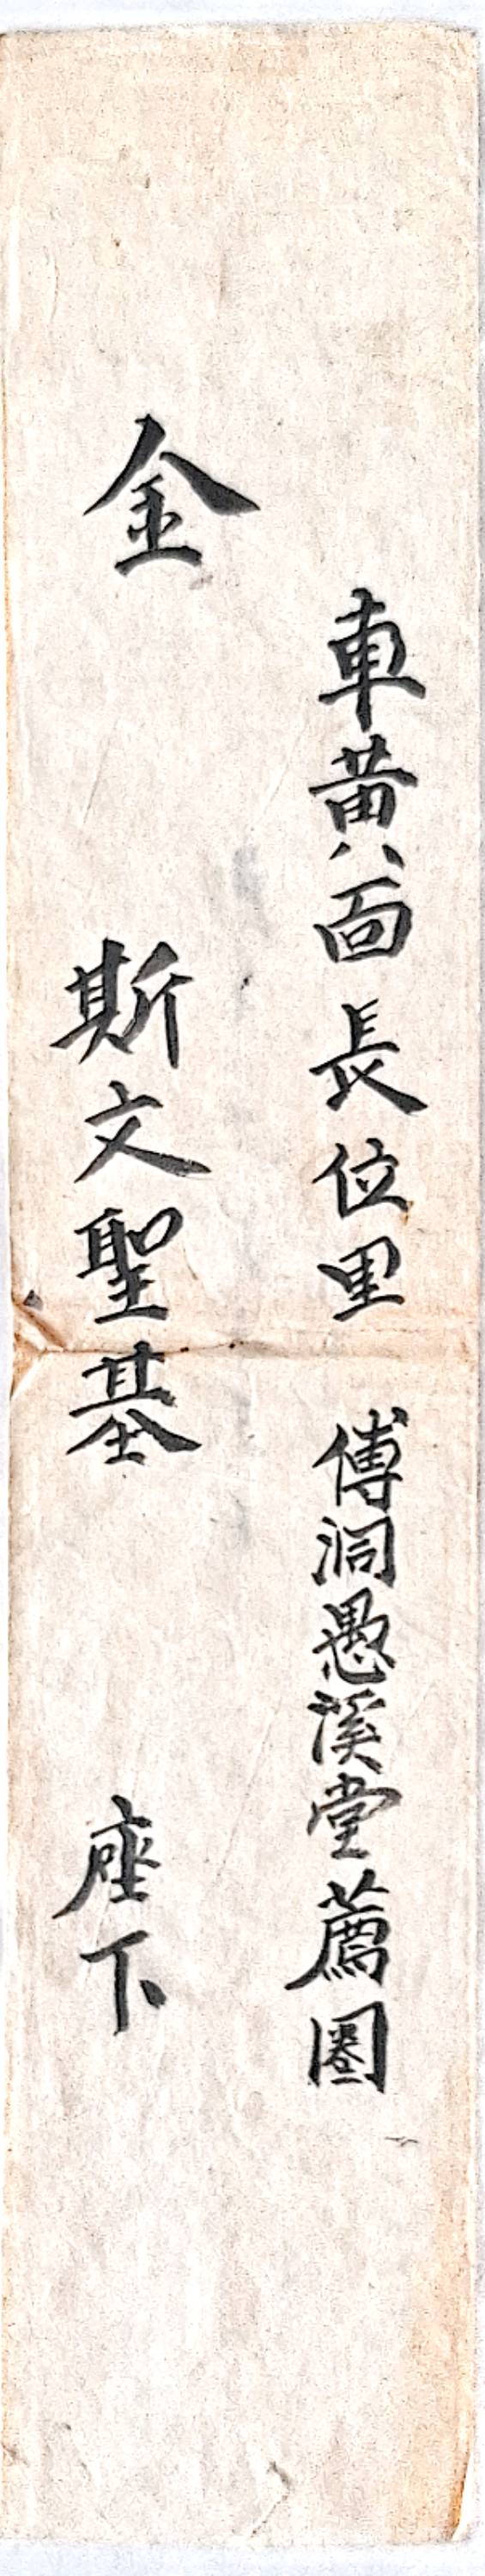 車黃面長位里 傅洞愚溪堂薦圈
金 斯文聖基 座下